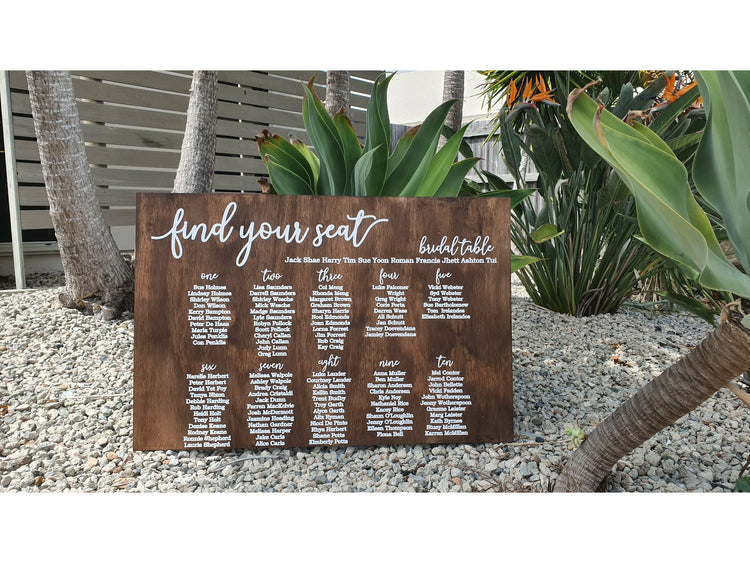 find your seat
bridal table
Jack Shae Harry Tim Sue Yoon Roman Francis Jhett Ashton Tui
one
Sue Holmes
Lindsey Holmes
Shirley Wilson
Don Wilson
Kerry Bampton
David Bampton
Peter De Haas
Maria Turple
Jules Penklis
Con Penklis
two
Lisa Saunders
Darrell Saunders
Shirley Wesche
Mick Wesche
Madge Saunders
Lyle Saunders
Robyn Pullock
Scott Pullock
Cheryl Callan
John Callan
Judy Lunn
Greg Lunn
three
Col Meng
Rhonda Meng
Margaret Brown
Graham Brown
Sharyn Harris
Noel Edmonds
Joan Edmonds
Lorna Forrest
Jim Forrest
Rob Craig
Kay Craig
four
Luke Falconer
Wright
Greg Wright
Corie Forta
Darren Wase
Ali Schott
Jen Schott
Tracey Doevendans
Jamiey Doevendans
five
Vicki Webster
Syd Webster
Tony Webster
Sue Bartholomew
Tom Irelandes
Elizabeth Irelandes
six
Narelle Herbert
Peter Herbert
David Yet Foy
Tanya Nixon
Debbie Harding
Rob Harding
Heidi Holt
Tony Holt
Denise Keane
Rodney Keane
Ronnie Shepherd
Larry Shepherd
seven
Melissa Walpole
Ashley Walpole
Brady Craig
Andrea Cristaldi
Jack Dunn
Parren MacKelvie
Josh McDermott
Jasmine Heading
Nathan Gardner
Melissa Harper
Jake Caris
Alice Caris
eight
Luke Lauder
Courtney Lauder
Alicia Smith
Kellin Smith
Trent Budley
Troy Garth
Alyce Garth
Alix Rymen
Nicci De Pinto
Rhys Herbert
Shane Potts
Kimberly Potts
nine
Anna Muller
Ben Muller
Sharon Andersen
Chris Andersen
Kyle Noy
Nathaniel Rice
Kacey Rice
Shaun O'Loughlin
Jenny O'Loughlin
Eileen Thompson
Fiona Bell
ten
Mel Conter
Jarred Contor
John Sellotts
Vicki Padden
John Wotherspon
Jenny Wotherspoon
Graeme Leister
Marg Leister
Kath Byrnes
Stucy McMillan
Karren McMillan